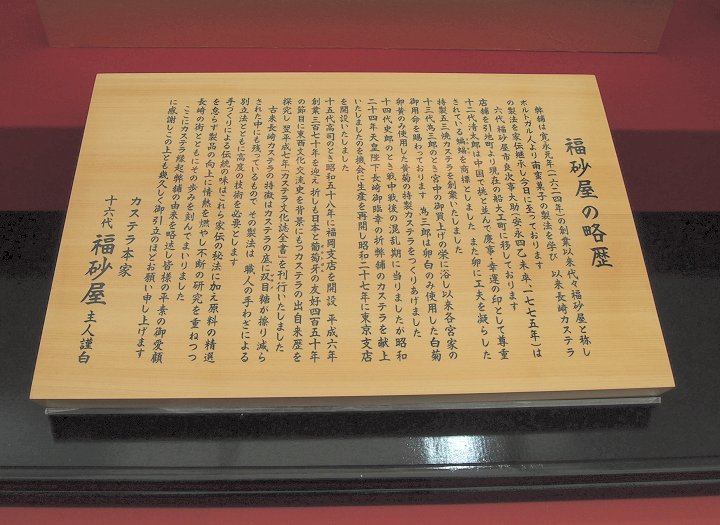 福砂屋の略歴
弊舗は寛永元年(一六二四年)の創業以来代々福砂屋と称し
ポルトガル人より南蛮菓子の製法を学び 以来長崎カステラ
の製法を家伝継承し今日に至っております
六代福砂屋市良次事大助(安永四乙未年 一七七五年)は
店舗を引地町より現在の船大工町に移しております
十二代清太郎は中国で桃と並んで慶事・幸運の印として尊重
されている蝙蝠を商標としました また卵に工夫を凝らした
特製五三焼カステラを創業いたしました
十三代為三郎のとき宮中の御買上げの栄に浴し以来各宮家の
御用命を賜わっております 為三郎は卵白のみ使用した白菊
卵黄のみ使用した黄菊の特製カステラをつくりあげました
十四代史郎のとき戦中戦後の混乱期に当りましたが昭和
二十四年天皇陛下長崎御臨幸の折弊舗のカステラを献上
いたしましたのを機会に生産を再開し昭和二十七年に東京支店
を開設いたしました
十五代高司のとき昭和五十八年に福岡支店を開設 平成六年
創業三百七十年を迎え 折しも日本と葡萄牙の友好四百五十年
の節目に東西文化交流史を背景にもつカステラの出自来歴を
探究し 翌平成七年「カステラ文化誌全書」を刊行いたしました
古来長崎カステラの特徴はカステラの底に双目糖が擦り減ら
された中にも残っているもので その製法は 職人の手わざによる
別立法とともに高度の技術を必要とします
手づくりによる伝統の味はこれら家伝の秘法に加え原料の精選
を怠らず製品の向上に情熱を燃やし不断の研究を重ねつつ
長崎の街とともにその歩みを刻んでまいりました
ここにカステラ縁起弊舗の由来を略述し皆様の平素の御愛顧
に感謝しこの上とも幾久しく御引立のほどお願い申し上げます
カステラ本家
十六代 福砂屋 主人謹白